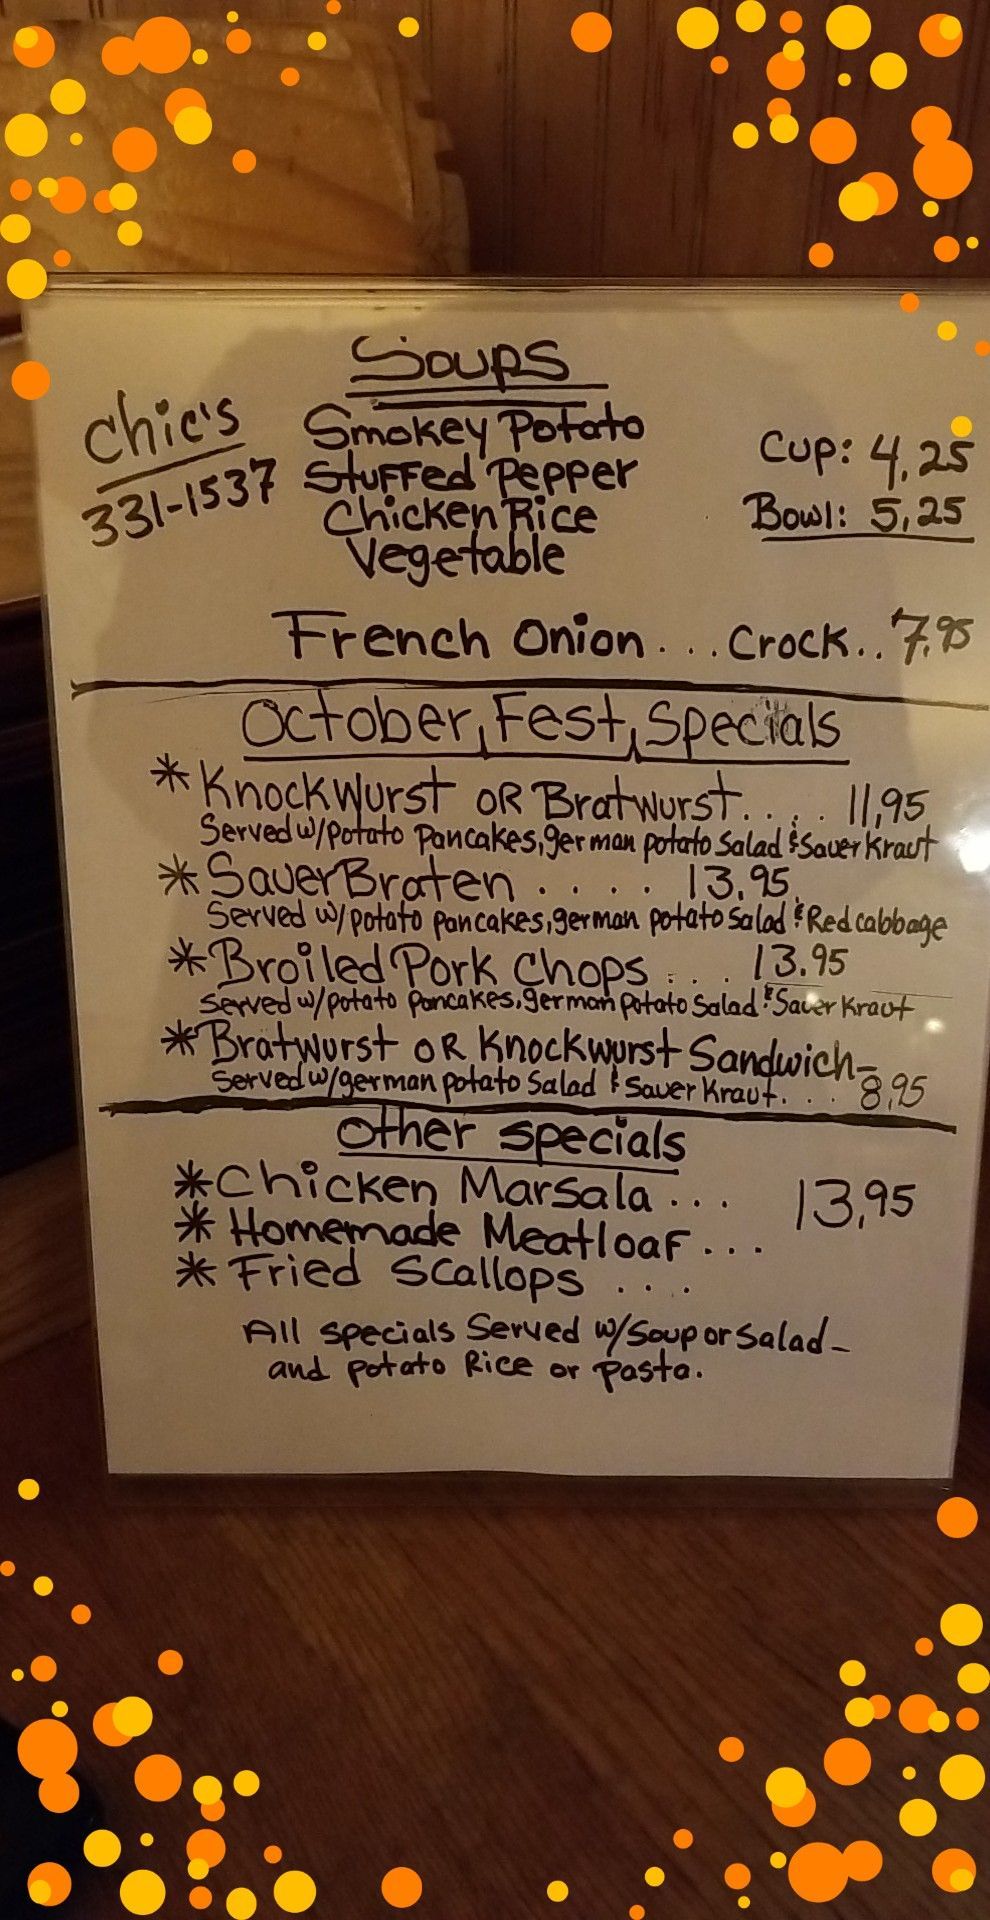 Soups
Chic's
331-1537
Smokey Potato
Stuffed Pepper
Chicken Rice
Vegetable
Cup: 4,25
Bowl: 5,25
French Onion ... Crock.. 7.95
October Fest Specials
* Knockwurst OR Bratwurst.... 11,95
Served w/potato pancakes, german potato salad & Sauer Kraut
* SauerBraten .... 13.95
Served w/potato pancakes, german potato salad & Red cabbage
* Broiled Pork Chops .... 13.95
Served w/potato pancakes, german potato salad & Sauer Kraut
* Bratwurst OR Knockwurst Sandwich-
Served w/german potato salad & Sauer Kraut.... 8,95
Other specials
* Chicken Marsala ... 13,95
* Homemade Meatloaf ...
* Fried Scallops ...
All specials Served w/Soup or Salad-
and potato Rice or Pasta.